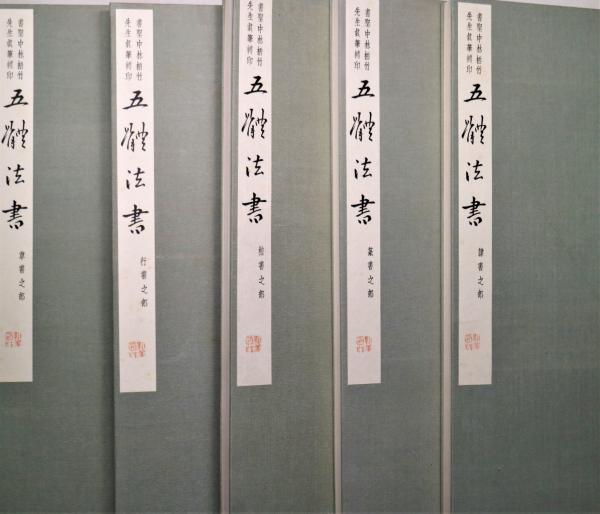 書聖中林梧竹
先生筆祠印
五體法書
隸書之部
書聖中林梧竹
先生筆祠印
五體法書
篆書之部
書聖中林梧竹
先生筆祠印
五體法書
楷書之部
書聖中林梧竹
先生筆祠印
五體法書
行書之部
書聖中林梧竹
先生筆祠印
五體法書
草書之部